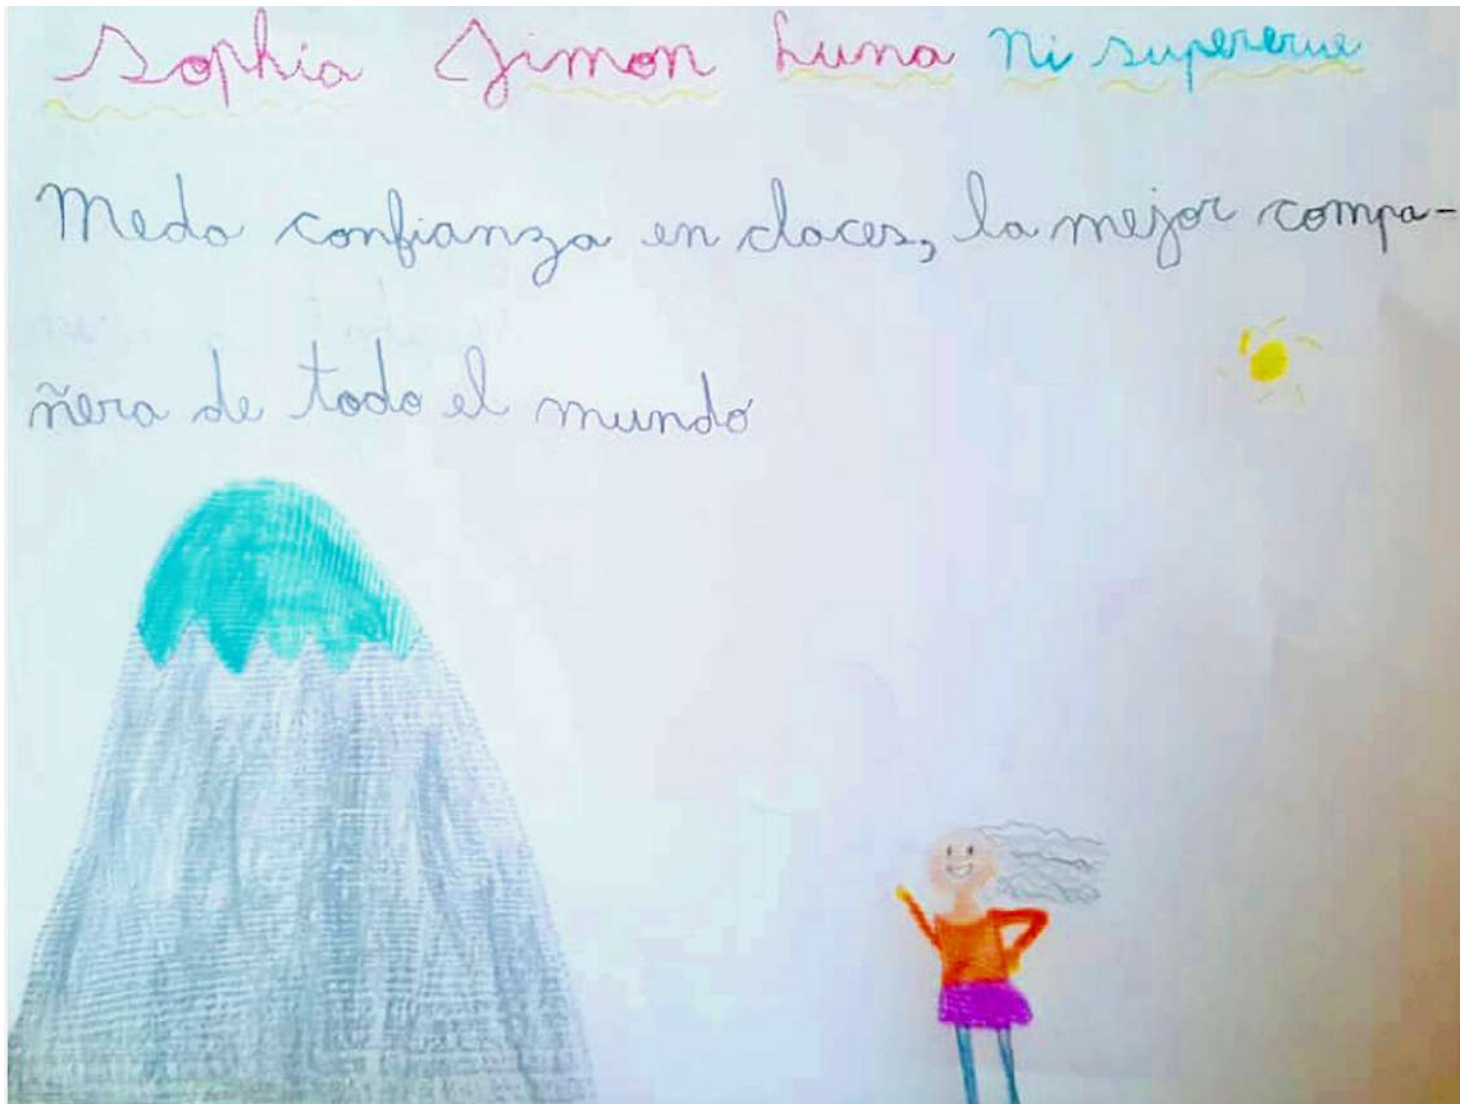 Sophia Simon Luna Mi supererue
Meda confianza en claces, la mejor compa-
ñera de todo el mundo